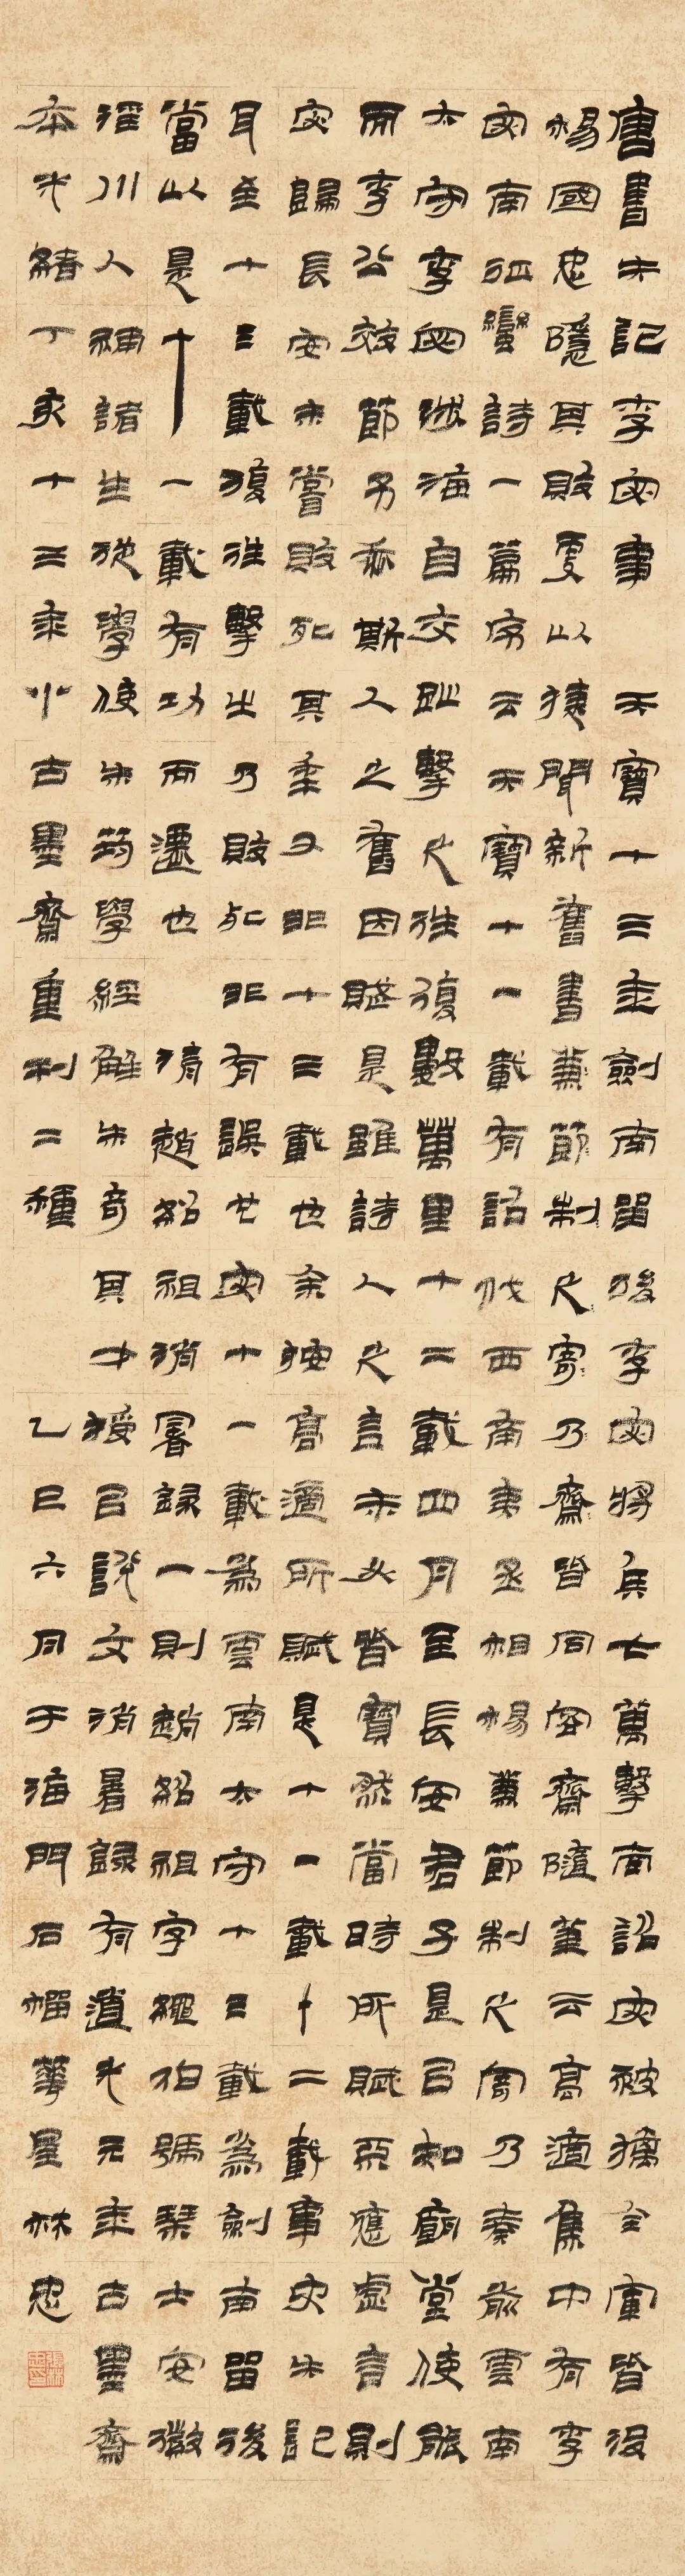 唐書失記李宓事 天寶十三年劍南留後李宓將兵七萬擊南詔宓被擒全軍皆沒
楊國忠隱其敗更以捷聞新舊書兼節制之寄乃齋皆同容齋隨筆云高適集中有李
宓南征蠻詩一篇序云天寶十一載有詔伐西南夷丞相楊兼節制之寄乃奏前雲南
太守李宓涉海自交趾擊之往復數萬里十二載四月至長安君子是以知廟堂使能
而李公效節予忝斯人之舊因賦是雖詩人之言未必皆實然當時所賦亦應虛言則
宓歸長安未嘗敗死其年又非十三載也余按高適所賦是十一載十二載事史失記
耳至十三載復往擊之乃敗死非有誤也宓十一載為雲南太守十三載為劍南留後
當以是十一載有功而遷也 清趙紹祖消暑錄一則趙紹祖字繩伯號琴士安徽
涇川人補諸生從學使朱筠學經解朱奇其才授以說文消暑錄有道光元年古墨齋
本光緒丁亥十三年小古墨齋重刊二種 乙巳六月于海門石榴華屋林忠